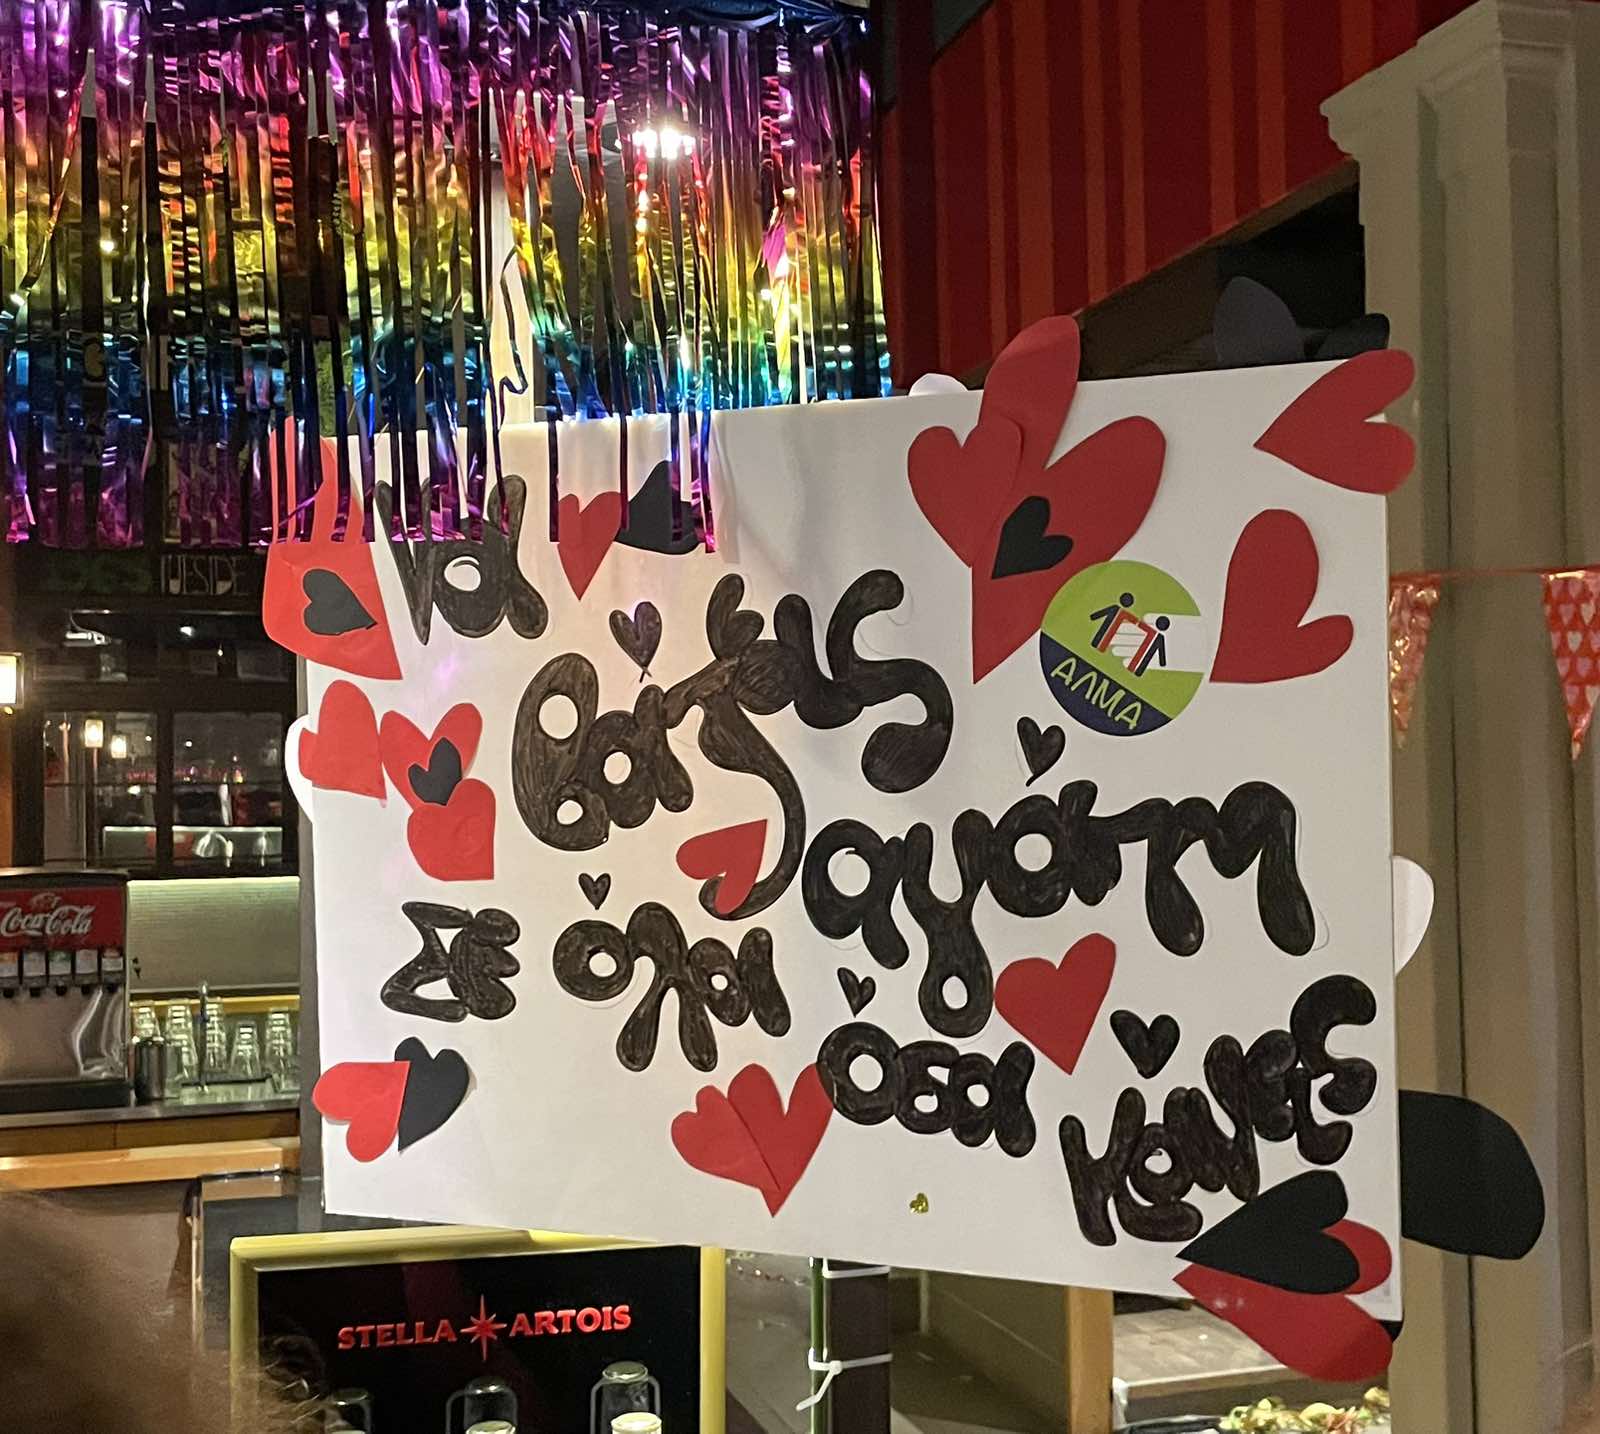 Να
βάζεις
ΑΛΜΑ
αγάπη
Σε όλα
όσα
κάνεις
Coca-Cola
STELLA ARTOIS